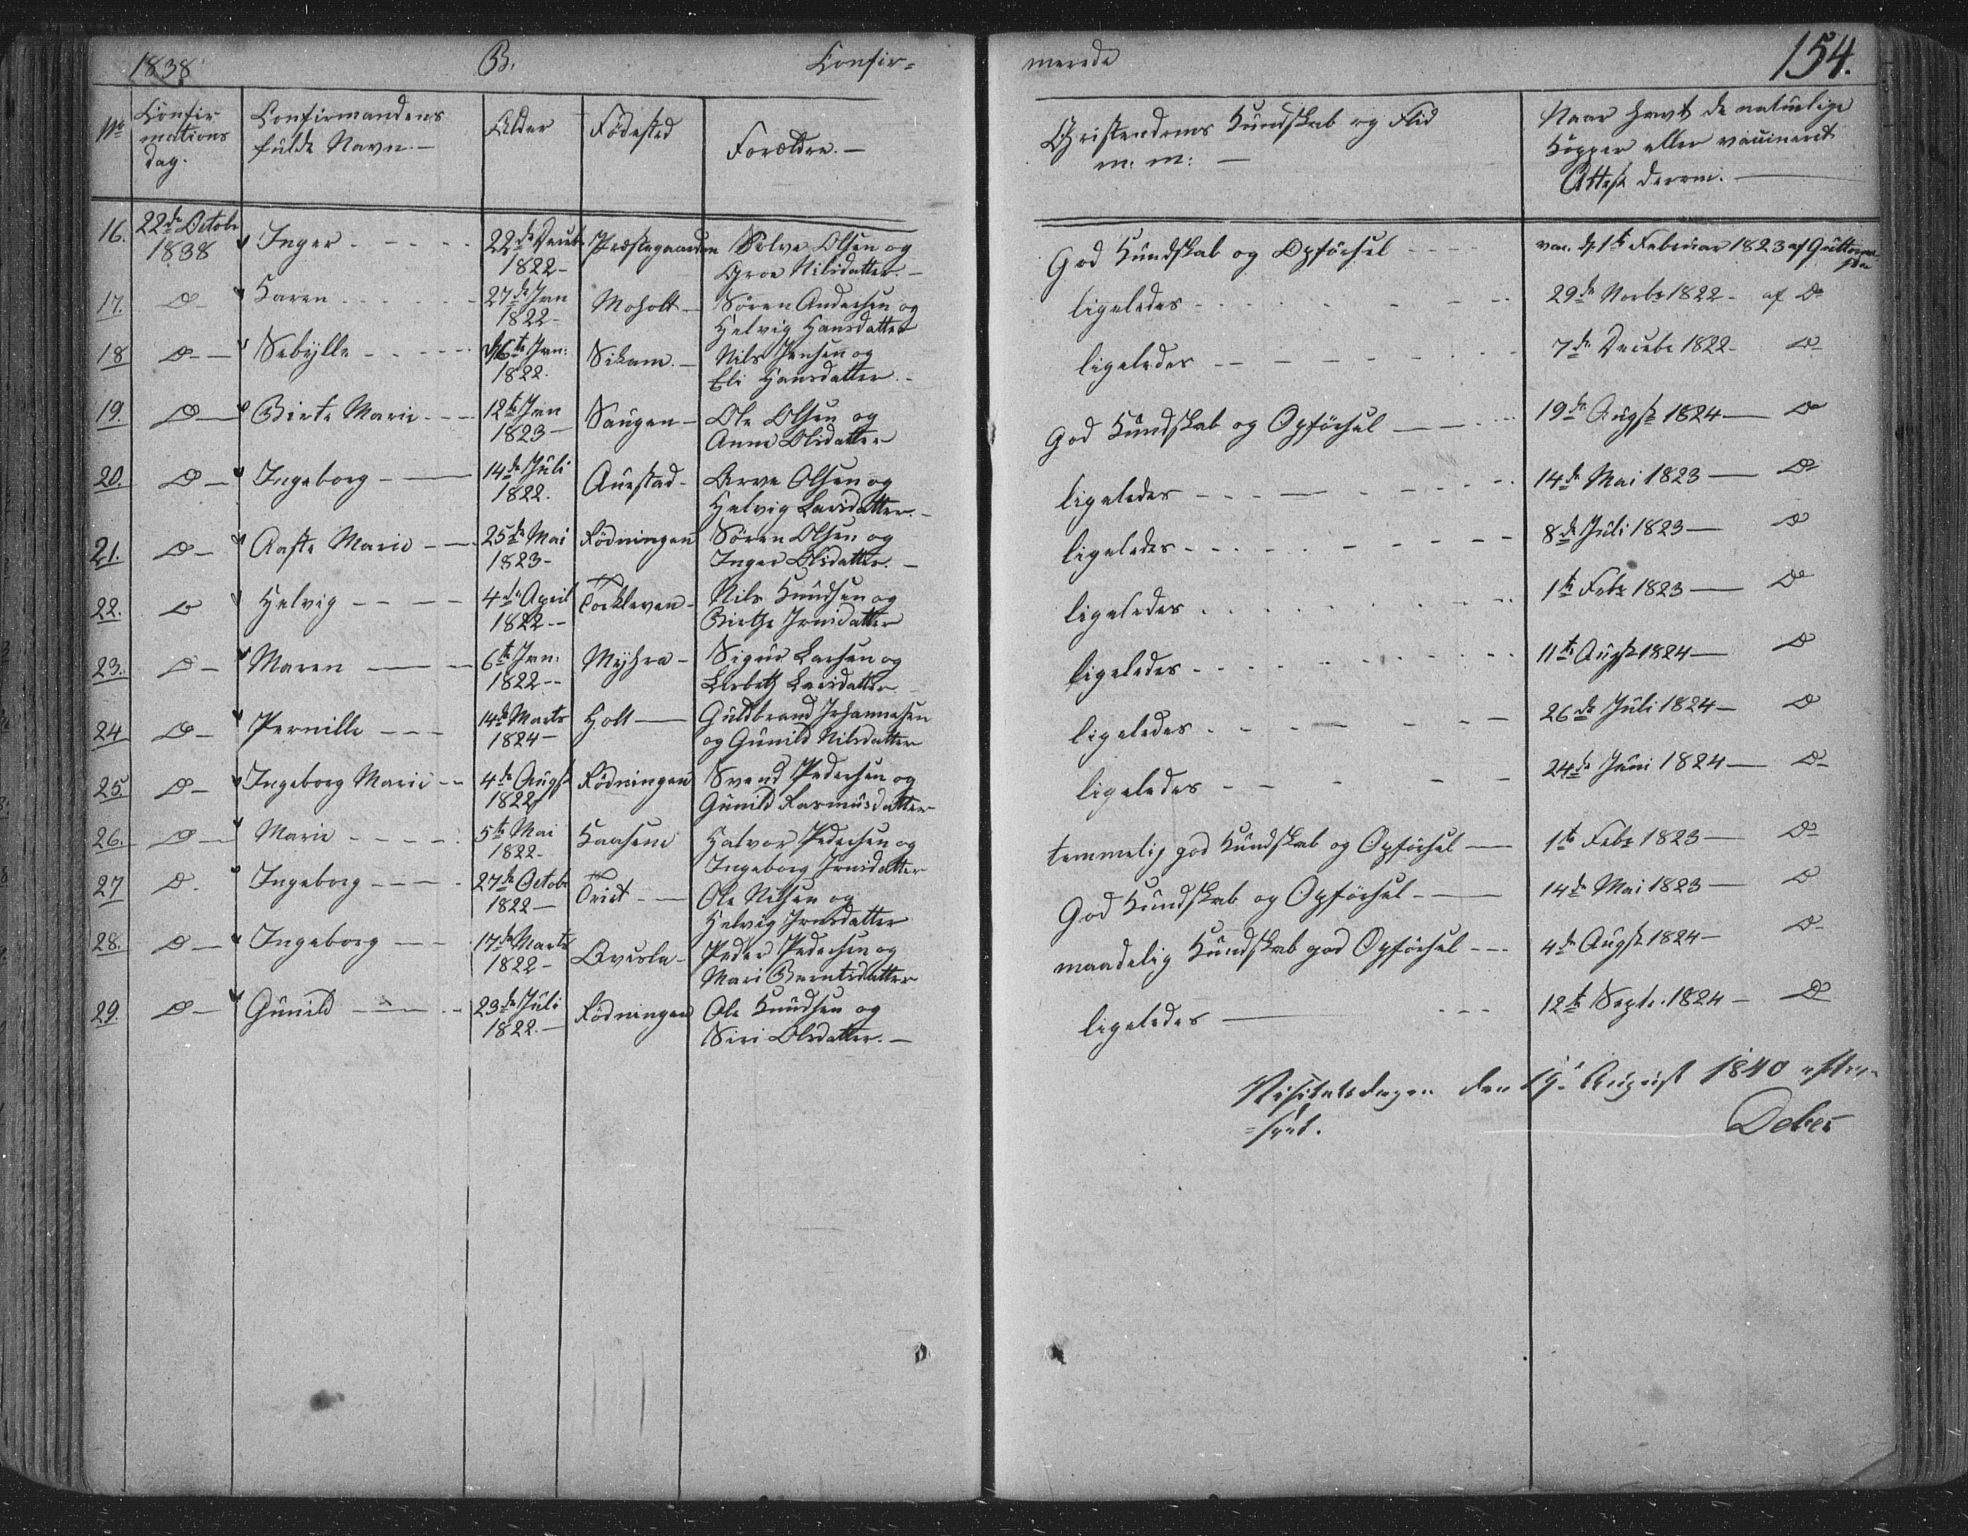 1838 B. Confir= merede 154.
No Confirmations Dag. Confirmandens fulde Navn. Alder Födested Forældre. Christendoms Kundskab og Flid m: m: Naar havt de naturlige Kopper eller vaccineret Attest derom.
16. 22de Octobr 1838 Inger 22de Decemb 1822 Præstegaarden Solve Olsen og
Groe Nilsdatter God Kundskab og Opförsel vac. d. 1te Februar 1823 af
17. Do Karen 27de Jan 1822 Moholt Sören Andersen og
Helvig Hansdatter ligeledes 29de Novbr 1822 af Do
18 Do Sebylle 16te Jan: 1822. Nils Jensen og
Eli Hansdatter ligeledes 7de Decebr 1822 Do
19. Do Birte Marie 12te Jan 1823 Ole Olsen og
Anne Olsdatter God Kundskab og Opförsel 19de Augst 1824 Do
20. Do Ingeborg 14de Juli 1822. Auestad Arve Olsen og
Helvig Larsdatter ligeledes 14de Mai 1823 Do
21. Do Aaste Marie 25de Mai 1823 Rödningen Sören Olsen og
Inger Olsdatter ligeledes 8de Juli 1823 Do
22. Do Helvig 4de April 1822 Tockleven Nils Knudsen og
Birthe Jensdatter ligeledes 1te Febr 1823 Do
23. Do Maren 6te Jan: 1822 Myhra Sigur Larsen og
Lisbeth Larsdatter ligeledes 11te Augst 1824 Do
24 Do Pernille 14de Marts 1824 Holt Guldbrand Johannesen
og Gunild Nilsdatter ligeledes 26de Juli 1824 Do
25 Do Ingeborg Marie 4de Augst 1822 Rödningen Svend Pedersen og
Gunild Rasmusdatter ligeledes 24de Juni 1824 Do
26. Do Marie 5te Mai 1822 Kaasene Halvor Pedersen og
Ingeborg Jensdatter temmelig god Kundskab og Opförsel 1te Febr 1823 Do
27 Do Ingeborg 27de Octobr 1822 Ole Nilsen og
Helvig Jensdatter God Kundskab og Opförsel 14de Mai 1823 Do
28. Do Ingeborg 17de Marts 1822 Qvisla Peder Pedersen og
Mari Berntsdatter maadelig Kundskab god Opförsel 4de Augst 1824 Do
29. Do Gunild 23de Juli 1822. Rödningen Ole Knudsen og
Siri Olsdatter ligeledes 12te Septr. 1824 Do
Visitatsdagen den 19. August 1840 efter=
=seet. Deber